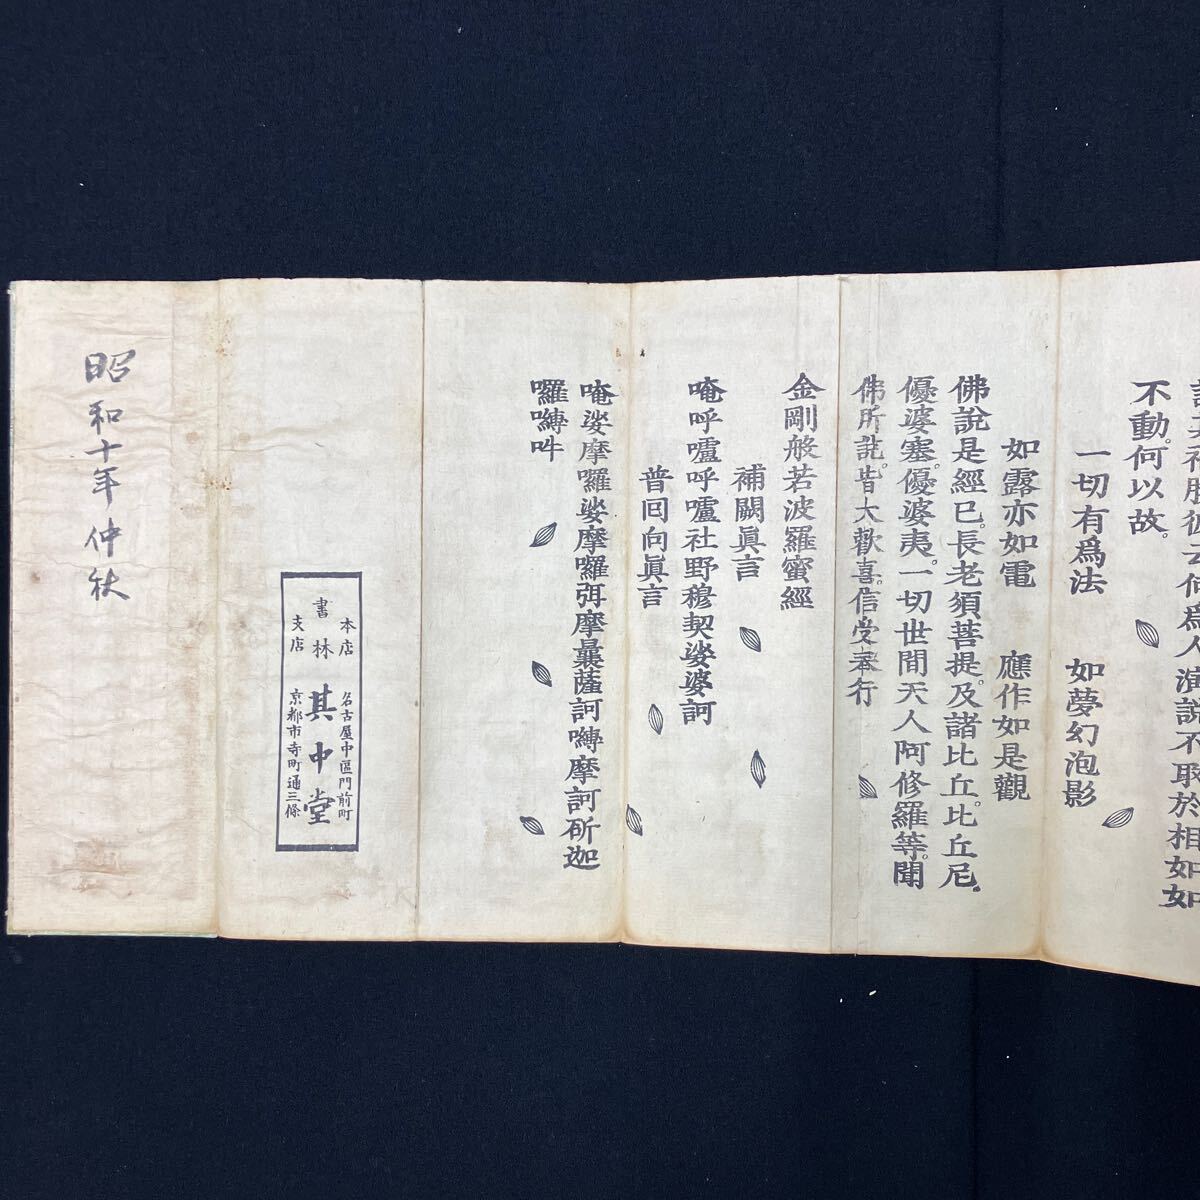 不動。何以故。
一切有爲法　如夢幻泡影
如露亦如電　應作如是觀
佛說是經已。長老須菩提。及諸比丘。比丘尼。
優婆塞。優婆夷。一切世間天人阿修羅等。聞
佛所說。皆大歡喜。信受奉行
金剛般若波羅蜜經
補闕眞言
唵呼嚧呼嚧社野穆契娑婆訶
普回向眞言
唵娑摩囉娑摩囉弭摩曩薩訶嚩摩訶斫迦
囉嚩吽
本店　名古屋中區門前町
書林　其中堂
支店　京都市寺町通三條
昭和十年仲秋